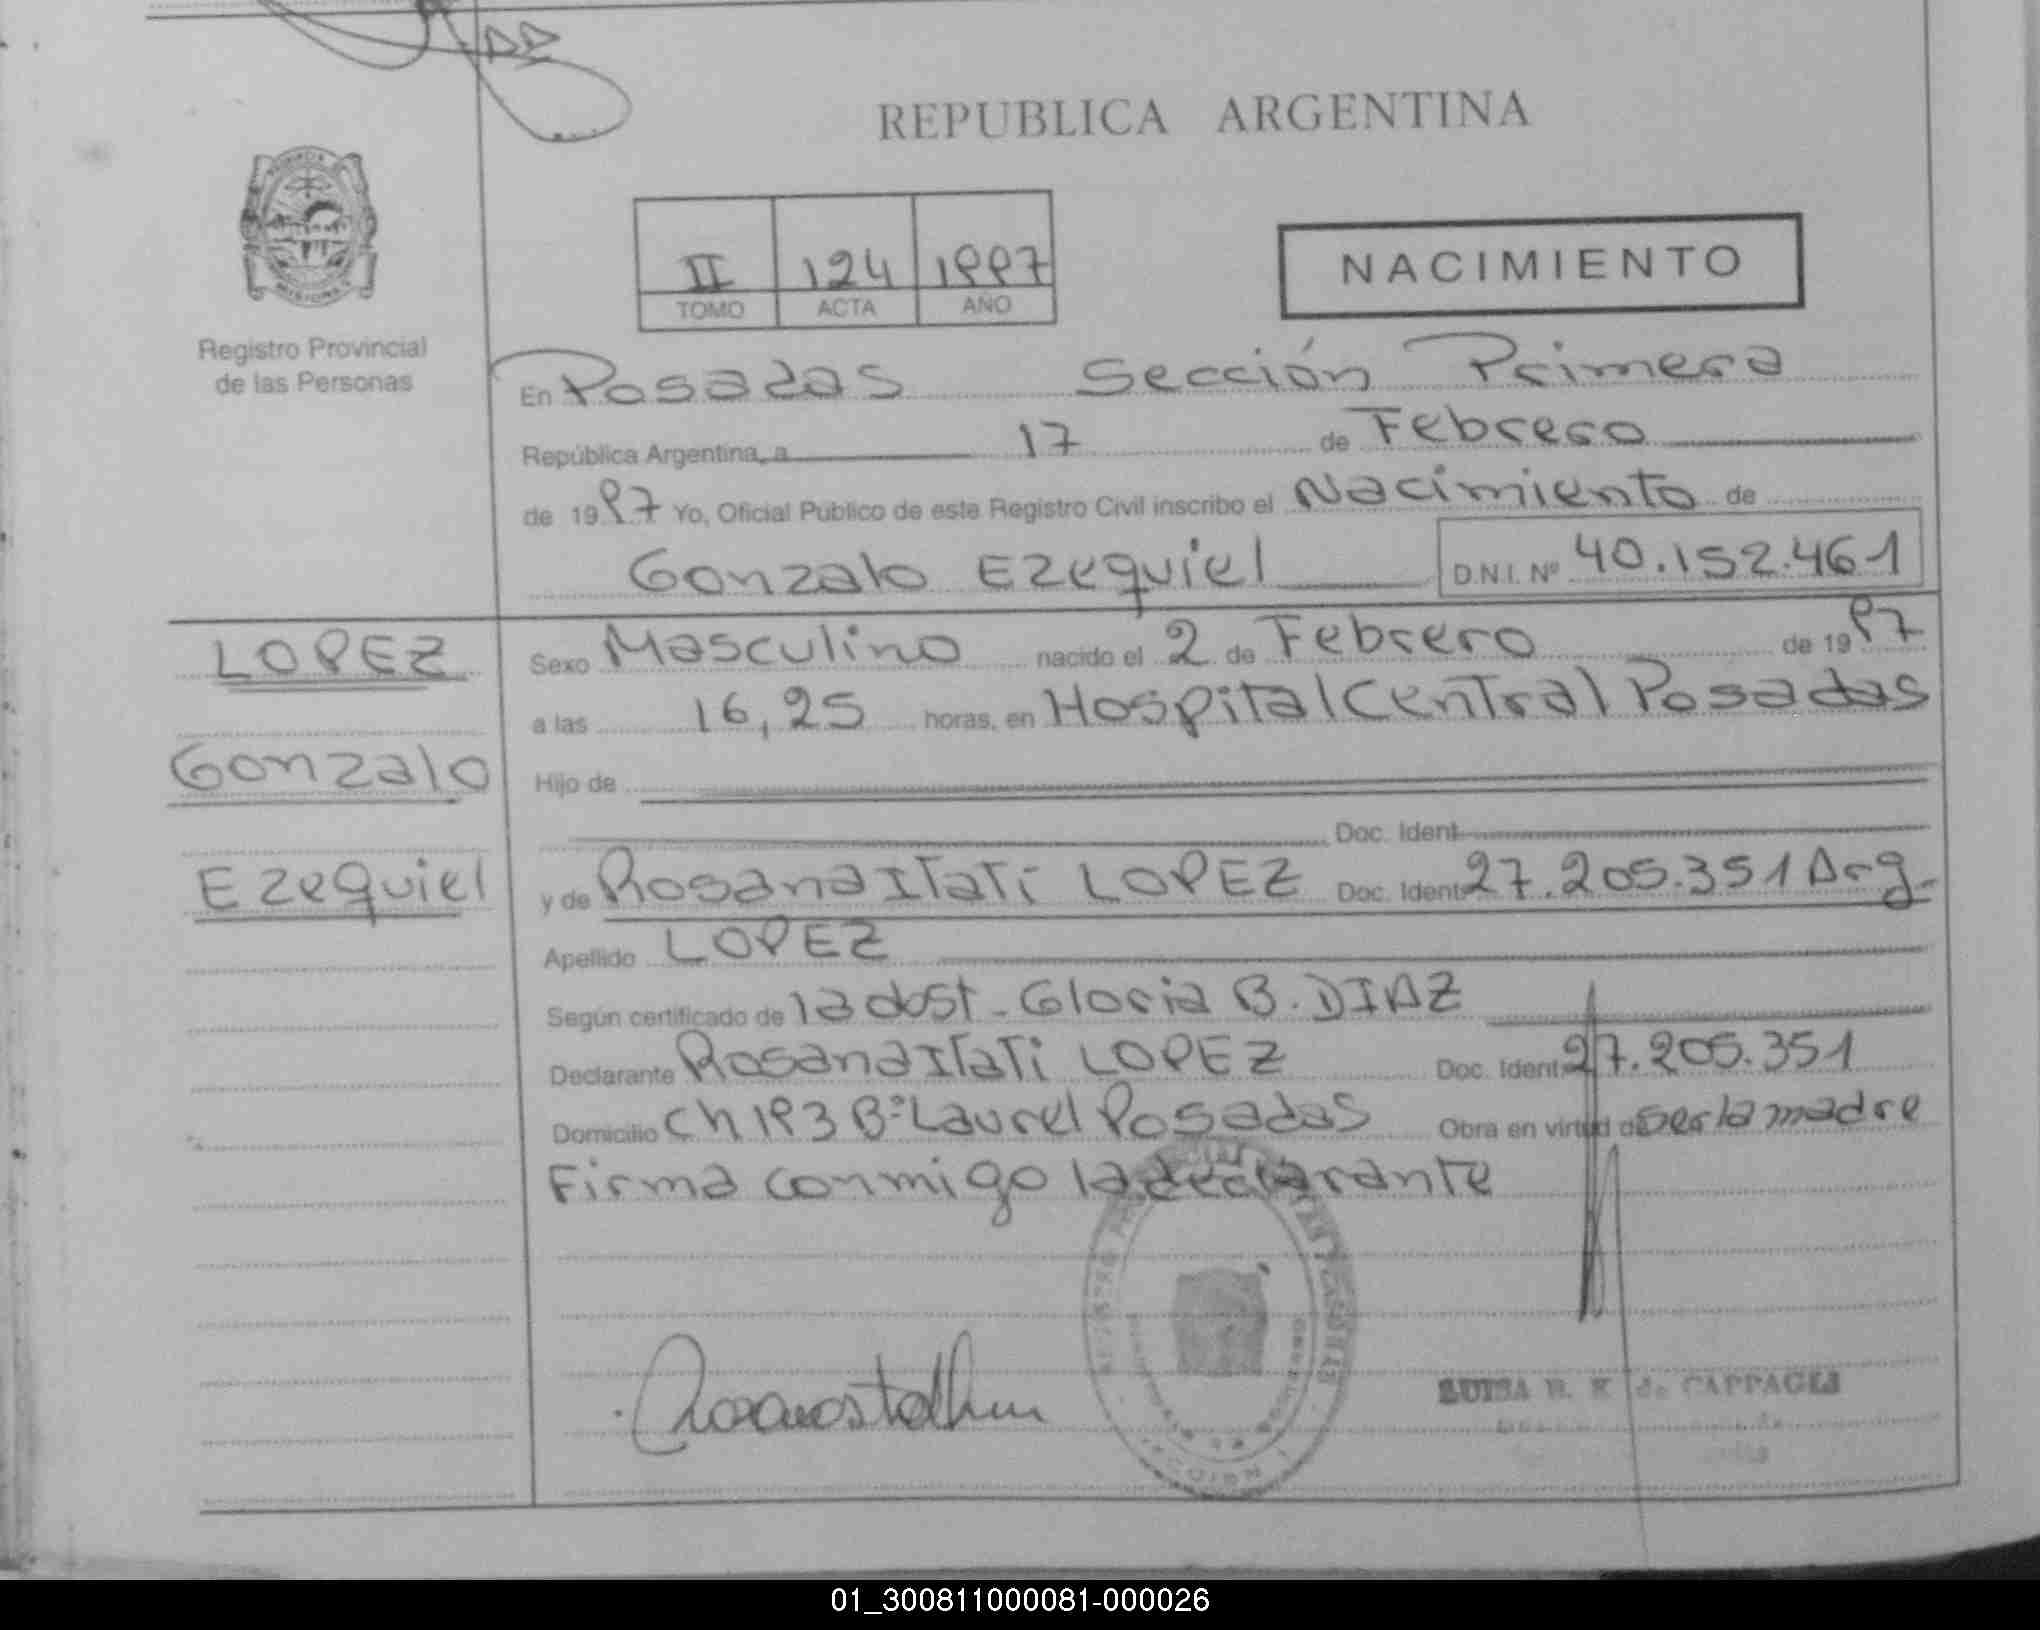 REPUBLICA ARGENTINA
II 124 1997
TOMO ACTA AÑO
NACIMIENTO
Registro Provincial
de las Personas
En Posadas Sección Primera
República Argentina, a 17 de Febrero
de 1997 Yo, Oficial Público de este Registro Civil inscribo el Nacimiento de
Gonzalo Ezequiel D.N.I. Nº 40.152.461
LOPEZ
Gonzalo
Ezequiel
Sexo Masculino nacido el 2 de Febrero de 1997
a las 16,25 horas, en Hospital Central Posadas
Hijo de
Doc. Ident
y de Rosana Itati LOPEZ Doc. Ident 27.205.351 Arg.
Apellido LOPEZ
Según certificado de la obst. Gloria B. DIAZ
Declarante Rosana Itati LOPEZ Doc. Ident 27.205.351
Domicilio Ch 193 Bº Laurel Posadas Obra en virtud de ser la madre
Firma conmigo la declarante
LUISA de CAPPAGLI
01_300811000081-000026